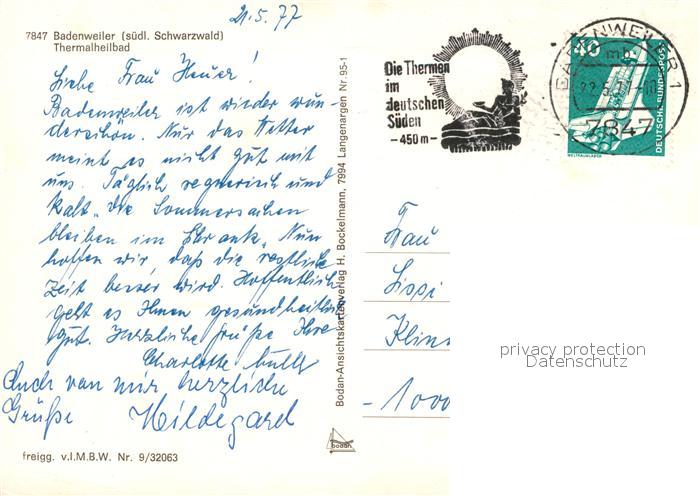 21.5.77
7847 Badenweiler (südl. Schwarzwald)
Thermalheilbad
Liebe Frau Heuer!
Badenweiler ist wieder wun-
derschön. Nur das Wetter
meint es nicht gut mit
uns. Täglich regnerisch und
kalt, die Sommersachen
bleiben im Schrank. Nun
hoffen wir, daß die restliche
Zeit besser wird. Hoffentlich
geht es Ihnen gesundheitlich
gut. Herzliche Grüße Ihre
Charlotte
Auch von mir herzliche
Grüße Hildegard
freigg. v.I.M.B.W. Nr. 9/32063
Bodan-Ansichtskartenverlag H. Bockelmann, 7994 Langenargen Nr. 95-1
bodan
Die Thermen
im
deutschen
Süden
-450m-
BADENWEILER 1
mb
22.5.77-10
7847
40
DEUTSCHE BUNDESPOST
WELTRAUMLABOR
Frau
Lissi
Klins
-1000
privacy protection
Datenschutz